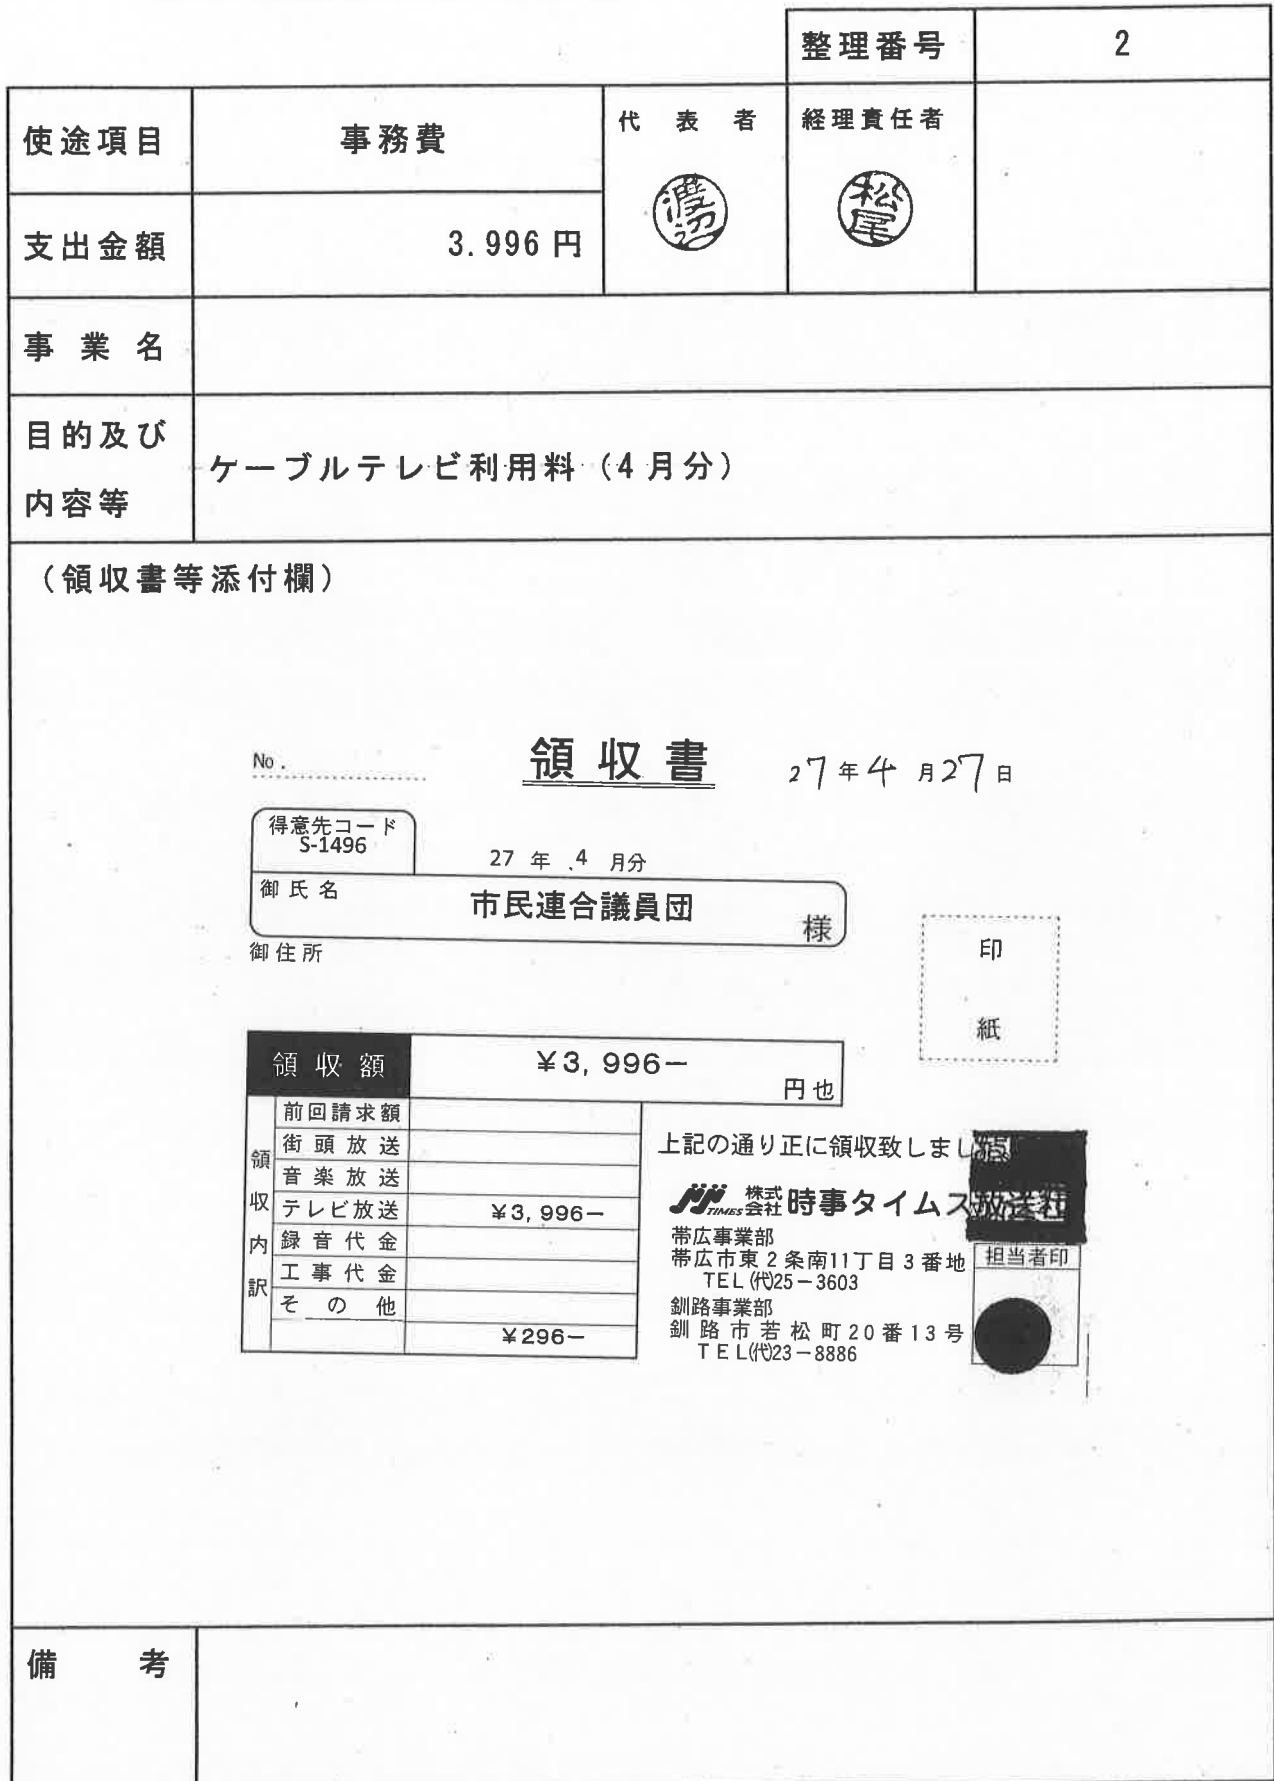 整理番号 2
使途項目 事務費 代表者 経理責任者
渡辺 松尾
支出金額 3.996円
事業名
目的及び
内容等
ケーブルテレビ利用料(4月分)
(領収書等添付欄)
No.
領収書
27年4月27日
得意先コード
S-1496
27年.4月分
御氏名 市民連合議員団 様
御住所
印
紙
領収額 ¥3,996-
円也
領収内訳
前回請求額
街頭放送
音楽放送
テレビ放送 ¥3,996-
録音代金
工事代金
その他
¥296-
上記の通り正に領収致しました
TIMES 株式会社 時事タイムス放送社
帯広事業部
帯広市東2条南11丁目3番地
TEL(代)25-3603
釧路事業部
釧路市若松町20番13号
TEL(代)23-8886
担当者印
備考